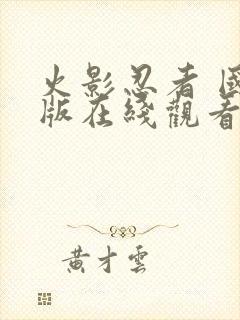 火影忍者 國
版在綫觀看
黄才雲